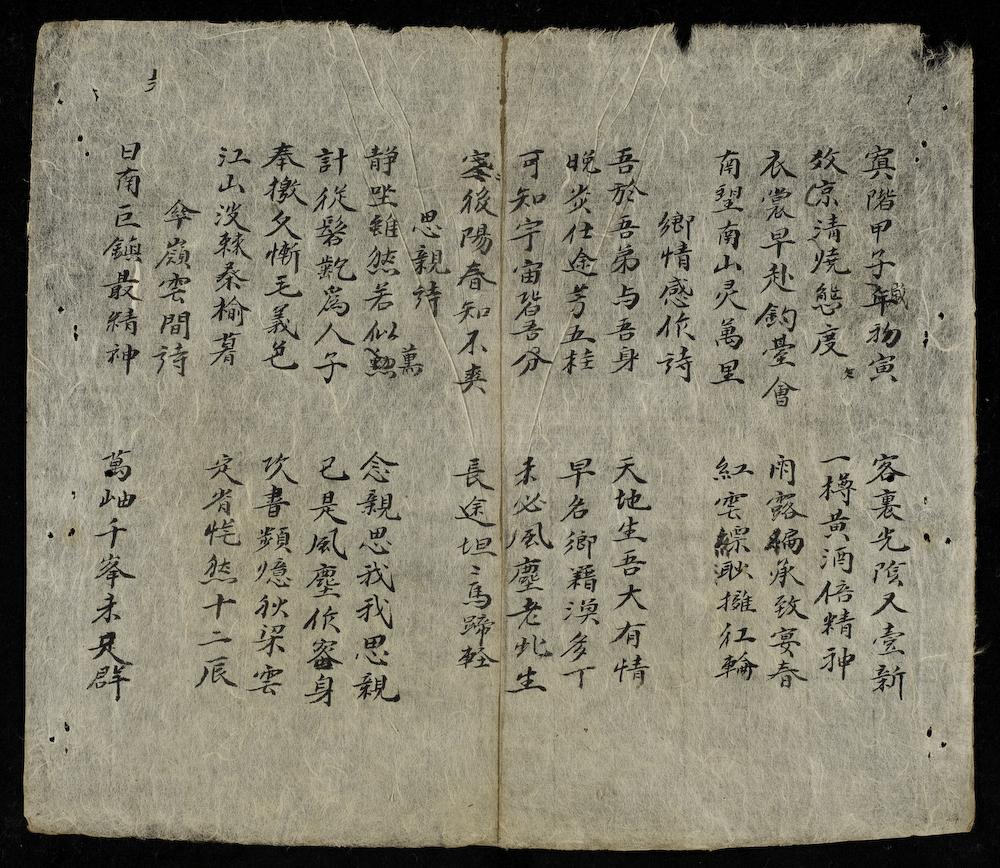 蓂階甲子歲初寅 客裏光陰又壹新
效凉清燒態度 一樽黄酒倍精神
衣裳早赴鈞臺會 雨露偏承致宴春
南望南山灵萬里 紅雲縹耿擁紅輪
鄉情感作詩
吾於吾弟与吾身 天地生吾大有情
晚炎仕途芳五桂 早名鄉籍渙多丁
可知宇宙皆吾分 未必風塵老此生
寒後陽春知不爽 長途坦〻馬蹄軽
思親詩
静坐雖然若似 萬 念親思我我思親
計從髫齔爲人子 已是風塵作客身
奉檄久慚毛義色 攻書頻憶狄梁雲
江山沒棘桑榆暮 定省恍然十二辰
傘嶺雲間詩
日南巨鎮最精神 萬岫千峯未足群